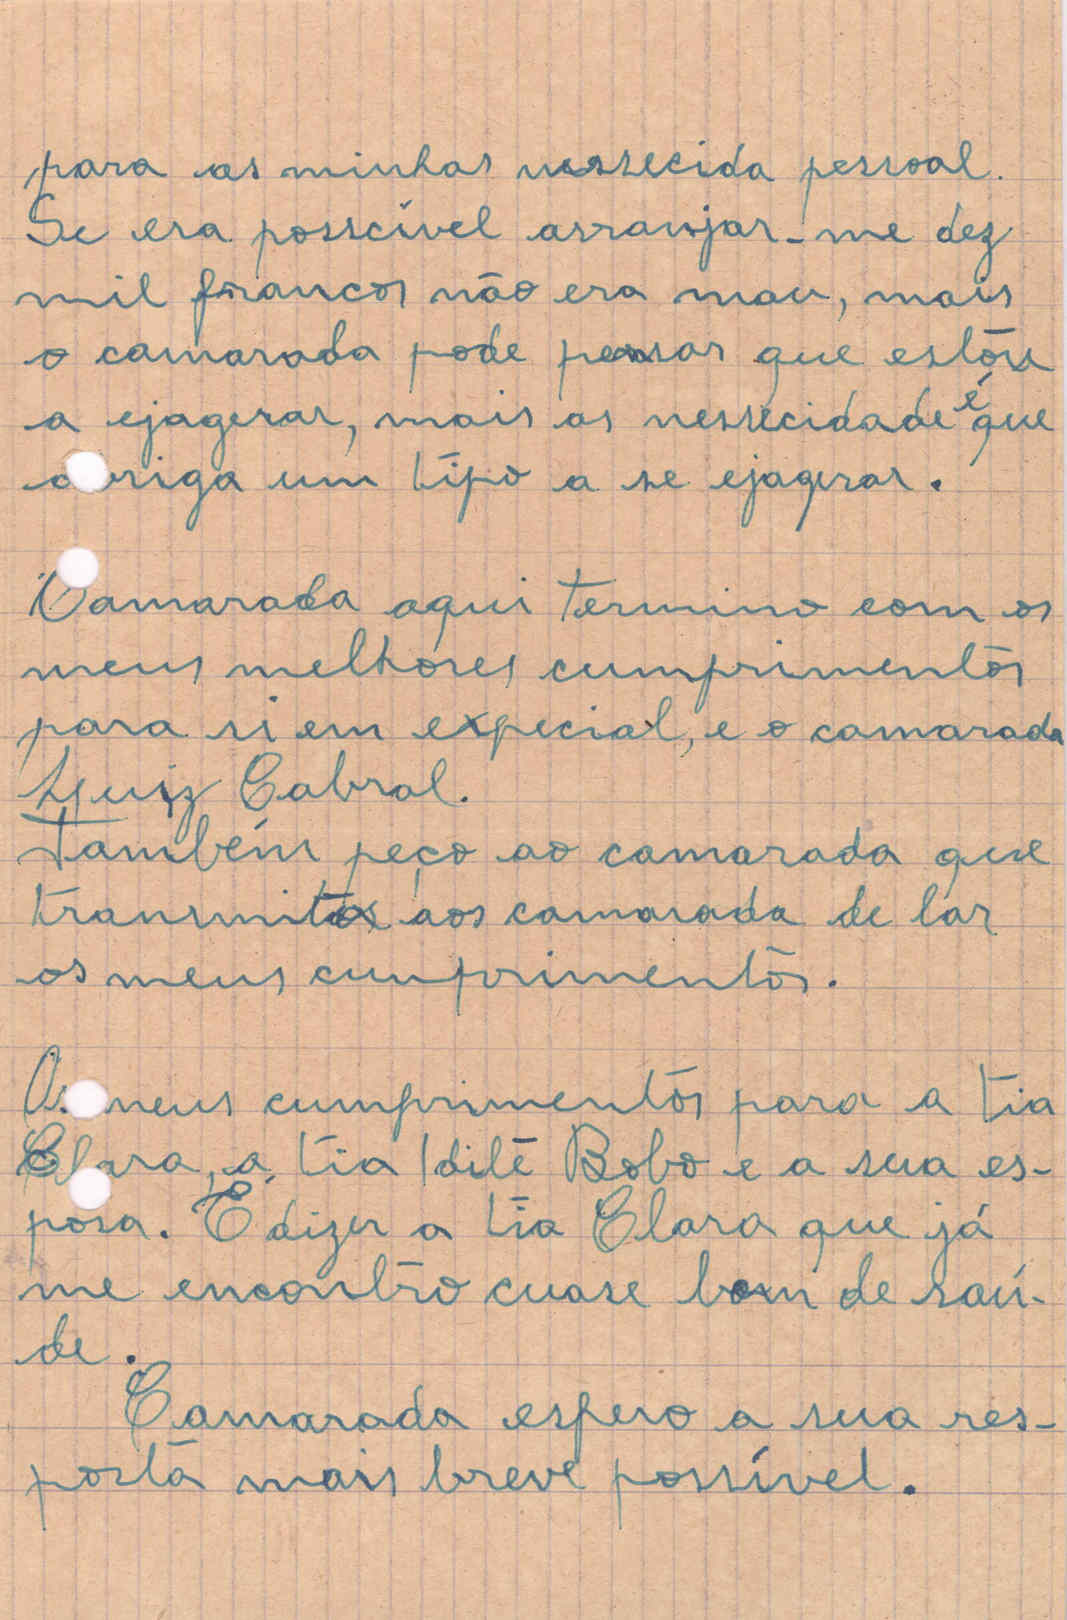 para as minhas nessecida pessoal.
Se era posscível arranjar-me dez
mil francos não era mau, mais
o camarada pode pensar que estou
a ejagerar, mais as nessecidade é que
obriga um tipo a se ejagerar.
Camarada aqui termino com os
meus melhores cumprimentos
para si em expecial, e o camarada
Luiz Cabral.
Também peço ao camarada que
transmita aos camarada de lar
os meus cumprimentos.
Os meus cumprimentos para a tia
Clara, a tia Idite Bobo e a sua es-
posa. E dizer a tia Clara que já
me encontro cuase bom de saú-
de.
Camarada espero a sua res-
posta mais breve possível.